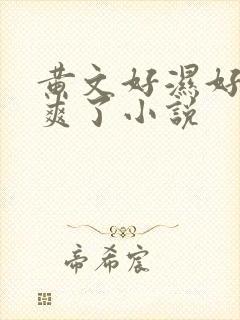 黄文好濕好
爽了小説
帝希宸